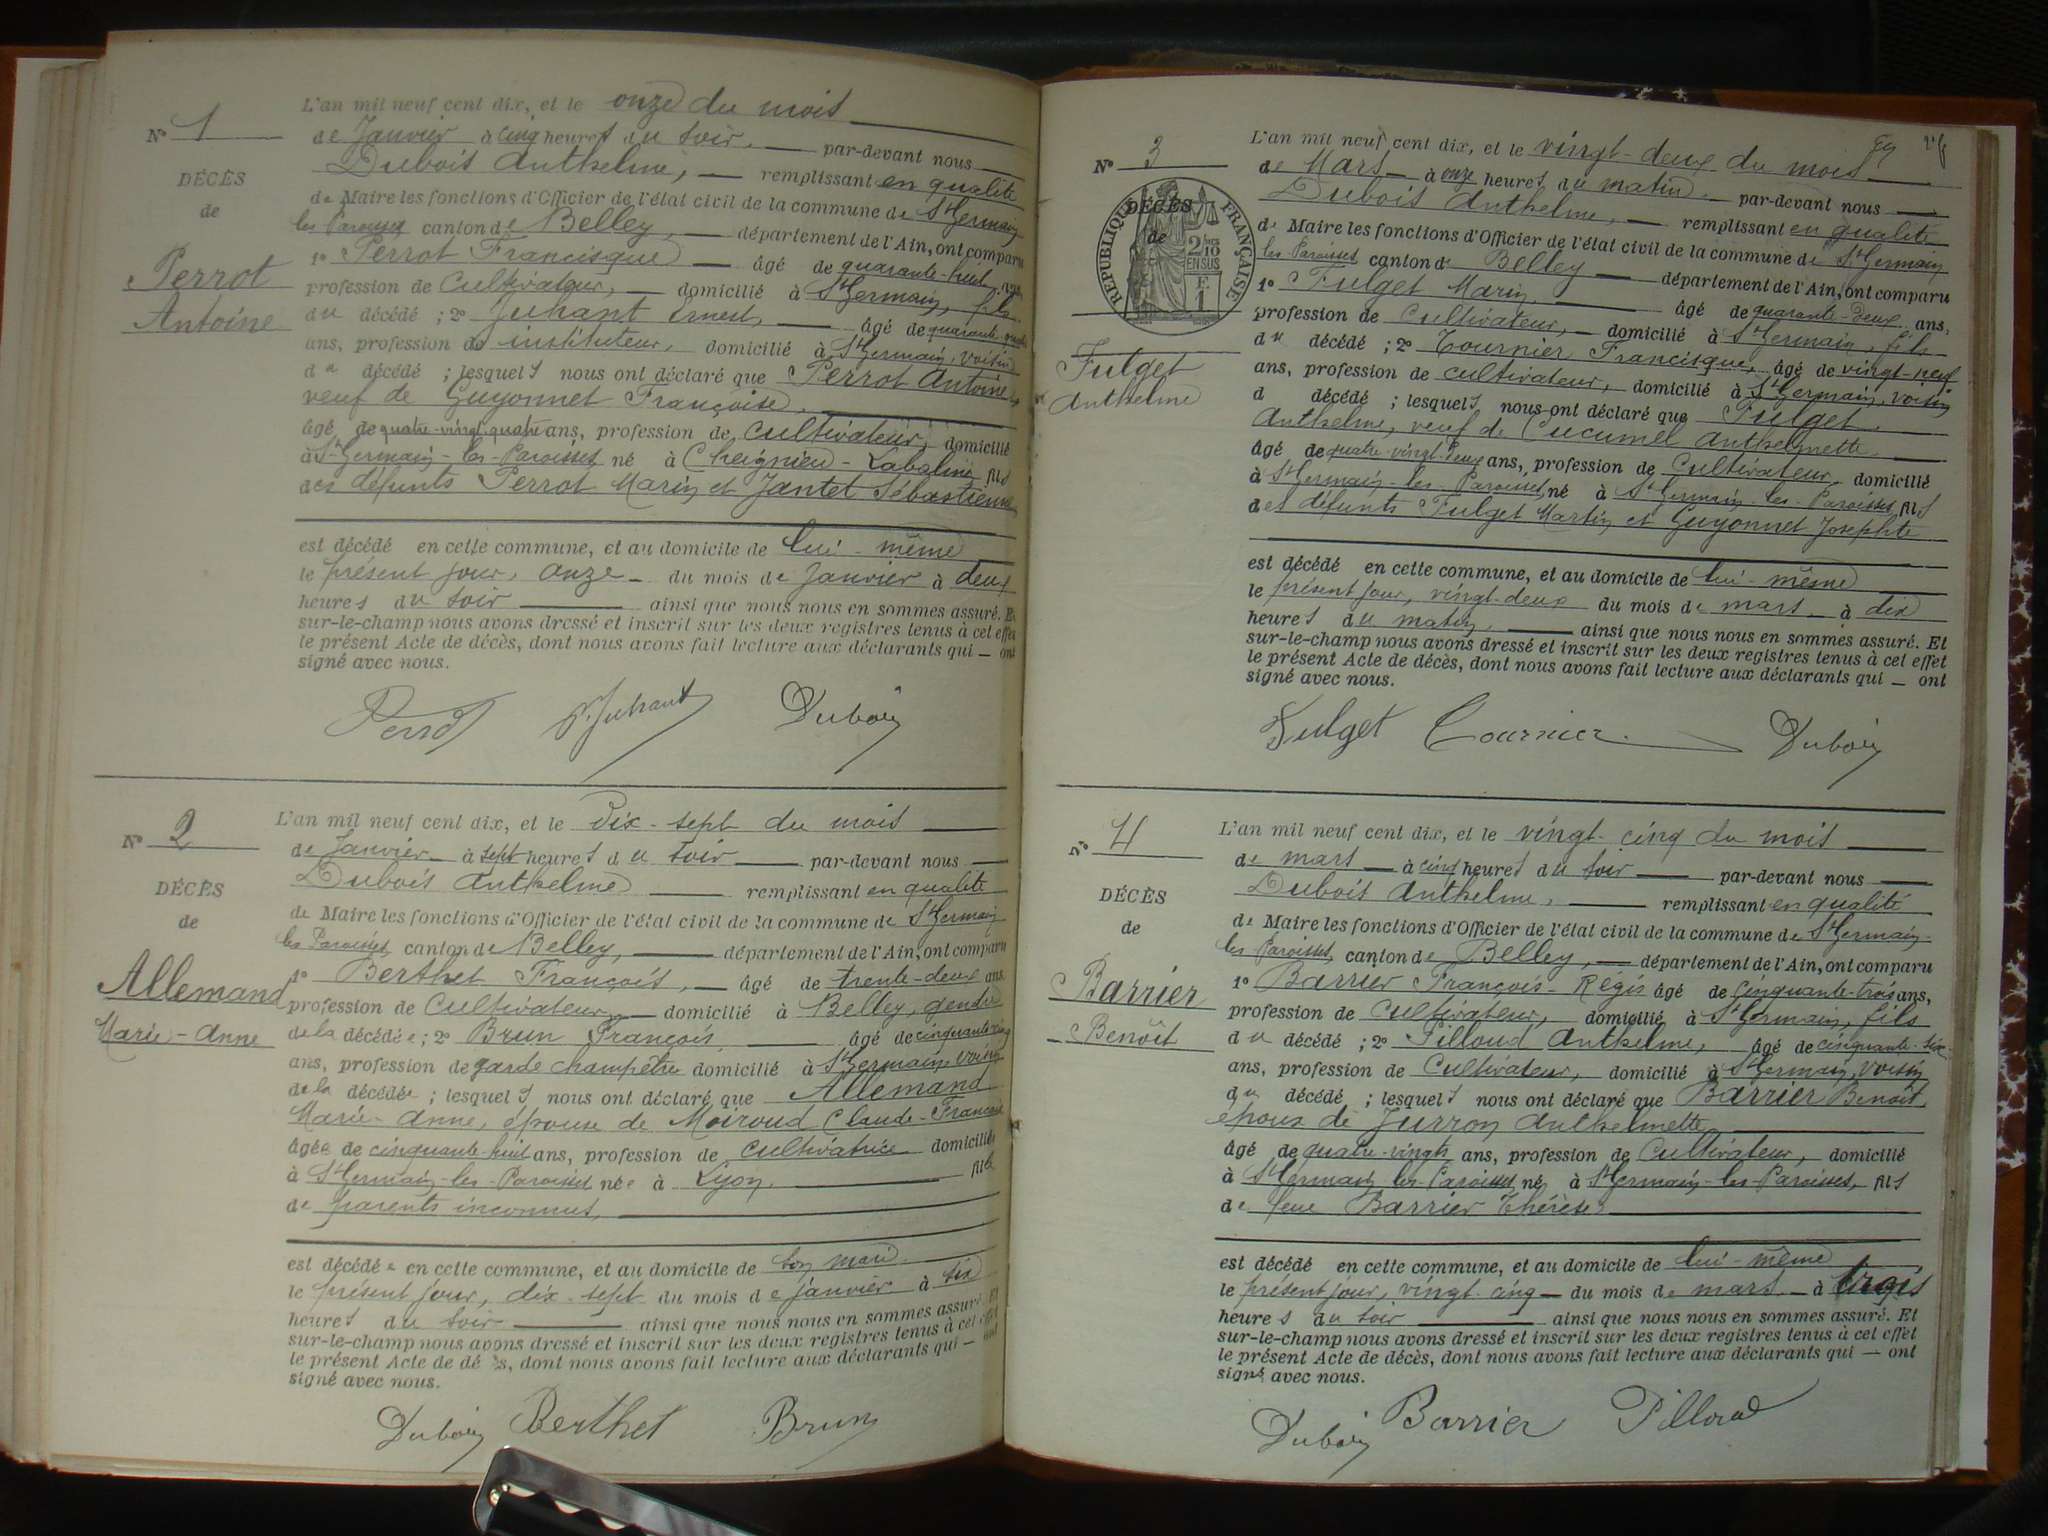 L'an mil neuf cent dix, et le onze du mois
N° 1
de Janvier à cinq heures du soir. par-devant nous
Dubois Anthelme, remplissant en qualité
DÉCÈS
de Maire les fonctions d'Officier de l'état civil de la commune de St Germain
de
les Paroisses canton de Belley, département de l'Ain, ont comparu
1° Perrot Francisque âgé de quarante-huit ans
Perrot
profession de Cultivateur, domicilié à St Germain, fils
Antoine
du décédé ; 2° Juhant Ernest, âgé de quarante-quatre
ans, profession de instituteur, domicilié à St Germain, voisin
du décédé ; lesquels nous ont déclaré que Perrot Antoine,
veuf de Guyonnet Françoise,
âgé de quatre-vingt-quatre ans, profession de cultivateur, domicilié
à St Germain-les-Paroisses né à Cheignieu-Labalme fils
des défunts Perrot Marin et Jantet Sébastienne
est décédé en cette commune, et au domicile de lui-même
le présent jour, onze du mois de Janvier à deux
heures du soir ainsi que nous nous en sommes assuré. Et
sur-le-champ nous avons dressé et inscrit sur les deux registres tenus à cet effet
le présent Acte de décès, dont nous avons fait lecture aux déclarants qui ont
signé avec nous.
Perrot Juhant Dubois
L'an mil neuf cent dix, et le Dix-sept du mois
N° 2
de Janvier à sept heures du soir par-devant nous
Dubois Anthelme remplissant en qualité
DÉCÈS
de Maire les fonctions d'Officier de l'état civil de la commune de St Germain
de
les Paroisses, canton de Belley, département de l'Ain, ont comparu
1° Berthet François, âgé de trente-deux ans
Allemand
profession de Cultivateur, domicilié à Belley, gendre
Marie-Anne
de la décédée ; 2° Brun François, âgé de cinquante-cinq
ans, profession de garde champêtre domicilié à St Germain, voisin
de la décédée ; lesquels nous ont déclaré que Allemand
Marie-Anne, épouse de Moiroud Claude-François
âgée de cinquante-huit ans, profession de cultivatrice domiciliée
à St Germain-les-Paroisses née à Lyon, fille
de parents inconnus,
est décédée en cette commune, et au domicile de son mari
le présent jour, dix-sept du mois de janvier à six
heures du soir ainsi que nous nous en sommes assuré. Et
sur-le-champ nous avons dressé et inscrit sur les deux registres tenus à cet effet
le présent Acte de dé s, dont nous avons fait lecture aux déclarants qui ont
signé avec nous.
Dubois Berthet Brun
L'an mil neuf cent dix, et le vingt-deux du mois
N° 3
de Mars à onze heures du matin. par-devant nous
Dubois Anthelme, remplissant en qualité
DÉCÈS
de Maire les fonctions d'Officier de l'état civil de la commune de St Germain
de
RÉPUBLIQUE FRANÇAISE
2/10 EN SUS
F. 1
les Paroisses canton de Belley département de l'Ain, ont comparu
1° Fulget Marin, âgé de quarante-deux ans,
profession de Cultivateur, domicilié à St Germain, fils
Fulget
du décédé ; 2° Tournier Francisque, âgé de vingt-neuf
Anthelme
ans, profession de cultivateur, domicilié à St Germain, voisin
d décédé ; lesquels nous ont déclaré que Fulget
Anthelme, veuf de Cucumel Anthelmette
âgé de quatre-vingt-deux ans, profession de Cultivateur domicilié
à St Germain-les-Paroisses né à St Germain-les-Paroisses, fils
des défunts Fulget Martin et Guyonnet Josephte
est décédé en cette commune, et au domicile de lui-même
le présent jour, vingt-deux du mois de mars à dix
heures du matin, ainsi que nous nous en sommes assuré. Et
sur-le-champ nous avons dressé et inscrit sur les deux registres tenus à cet effet
le présent Acte de décès, dont nous avons fait lecture aux déclarants qui ont
signé avec nous.
Fulget Tournier Dubois
L'an mil neuf cent dix, et le vingt-cinq du mois
N° 4
de mars à cinq heures du soir par-devant nous
Dubois Anthelme, remplissant en qualité
DÉCÈS
de Maire les fonctions d'Officier de l'état civil de la commune de St Germain-
de
les Paroisses, canton de Belley, département de l'Ain, ont comparu
1° Barrier François-Régis âgé de cinquante-trois ans,
Barrier
profession de Cultivateur, domicilié à St Germain, fils
Benoît
du décédé ; 2° Pilloud Anthelme, âgé de cinquante-six
ans, profession de Cultivateur, domicilié à St Germain, voisin
du décédé ; lesquels nous ont déclaré que Barrier Benoît,
époux de Jurron Anthelmette,
âgé de quatre-vingts ans, profession de Cultivateur, domicilié
à St Germain-les-Paroisses né à St Germain-les-Paroisses, fils
de feue Barrier Thérèse,
est décédé en cette commune, et au domicile de lui-même
le présent jour, vingt-cinq du mois de mars à trois
heures du soir ainsi que nous nous en sommes assuré. Et
sur-le-champ nous avons dressé et inscrit sur les deux registres tenus à cet effet
le présent Acte de décès, dont nous avons fait lecture aux déclarants qui ont
signé avec nous.
Dubois Barrier Pilloud